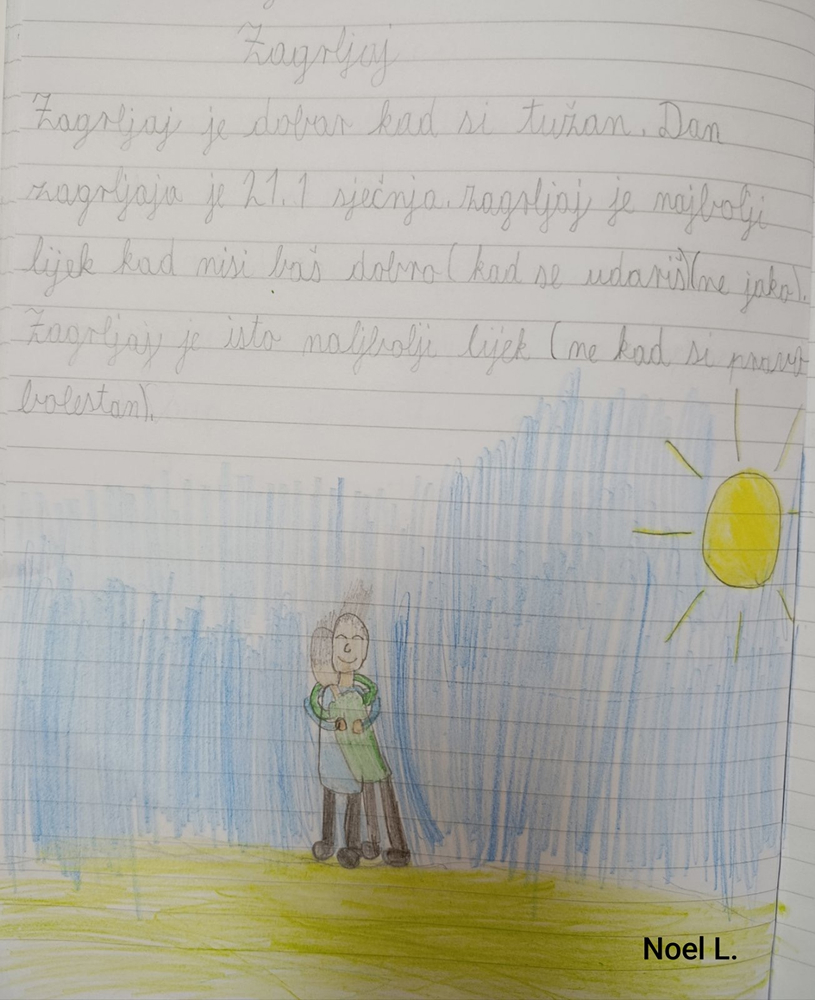 Zagrljaj
Zagrljaj je dobar kad si tužan. Dan
zagrljaja je 21.1 sječnja. Zagrljaj je najbolji
lijek kad nisi baš dobro (kad se udariš)(ne jako).
Zagrljaj je isto najbolji lijek (ne kad si pravo
bolestan).
Noel L.